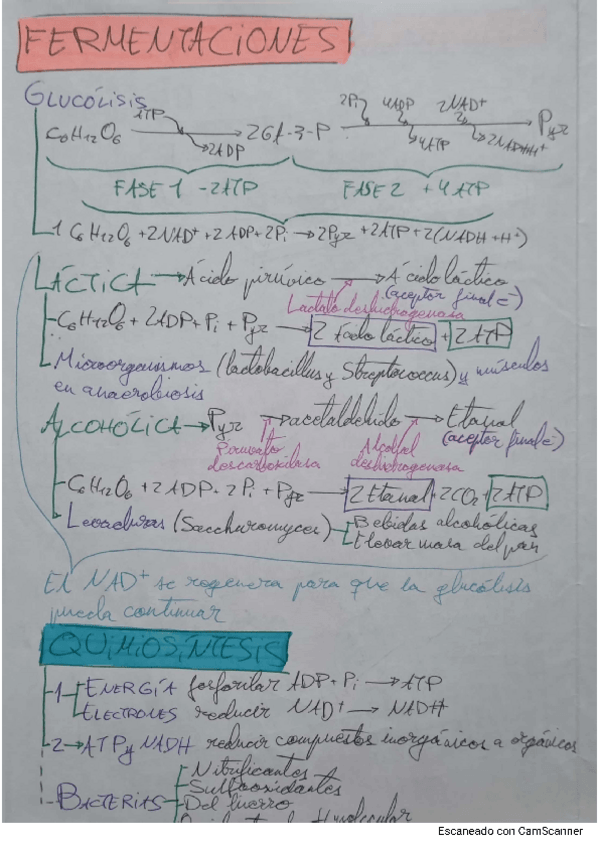 FERMENTACIONES
GLUCÓLISIS
ATP 2Pi 4ADP 2NAD⁺
C6H12O6 → 2GA-3-P → Pyr
2ADP 4ATP 2NADHH⁺
FASE 1 -2ATP FASE 2 +4ATP
1 C6H12O6 + 2NAD⁺ + 2ADP + 2Pi → 2Pyr + 2ATP + 2(NADH + H⁺)
LÁCTICA → Ácido pirúvico → Ácido láctico
(aceptor final e⁻)
Lactato deshidrogenasa
C6H12O6 + 2ADP + Pi + Pyr → 2 Ácido láctico + 2ATP
Microorganismos (lactobacillus y Streptococcus) y músculos
en anaerobiosis
ALCOHÓLICA → Pyr → acetaldehído → Etanal
(aceptor final e⁻)
Piruvato Alcohol
descarboxilasa deshidrogenasa
C6H12O6 + 2ADP + 2Pi + Pyr → 2 Etanal + 2CO2 + 2ATP
Levaduras (Saccharomyces) Bebidas alcohólicas
Elevar masa del pan
El NAD⁺ se regenera para que la glucólisis
pueda continuar
QUIMIOSÍNTESIS
1 ENERGÍA fosforilar ADP + Pi → ATP
ELECTRONES reducir NAD⁺ → NADH
2 → ATP y NADH reducir compuestos inorgánicos a orgánicos
Nitrificantes
Sulfooxidantes
BACTERIAS Del hierro
Escaneado con CamScanner